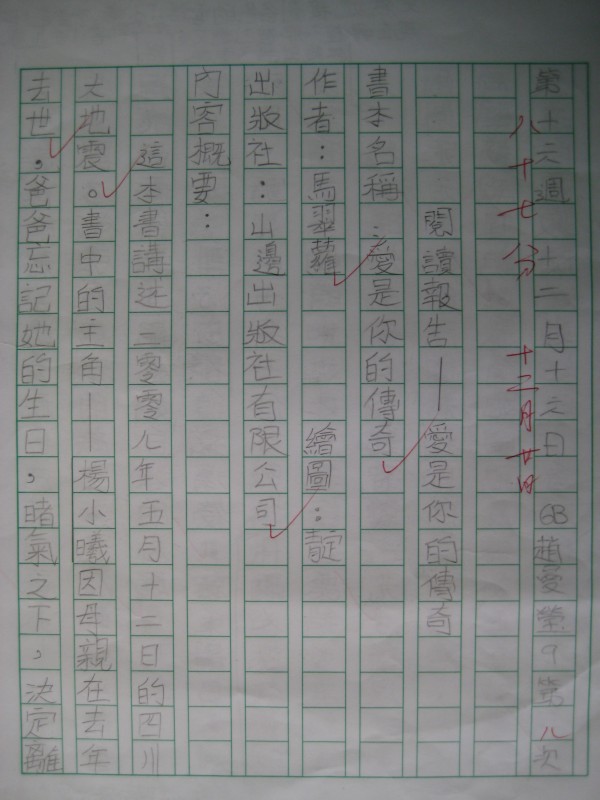 第十六週 十二月十六日 6B趙曼瑩9第八次
八十七分 十二月廿日
閱讀報告—愛是你的傳奇
書本名稱：愛是你的傳奇
作者：馬翠蘿 繪圖：靛
出版社：山邊出版社有限公司
內容概要：
這本書講述二零零八年五月十二日的四川
大地震。書中的主角——楊小曦因母親在去年
去世，爸爸忘記她的生日，睹氣之下，決定離